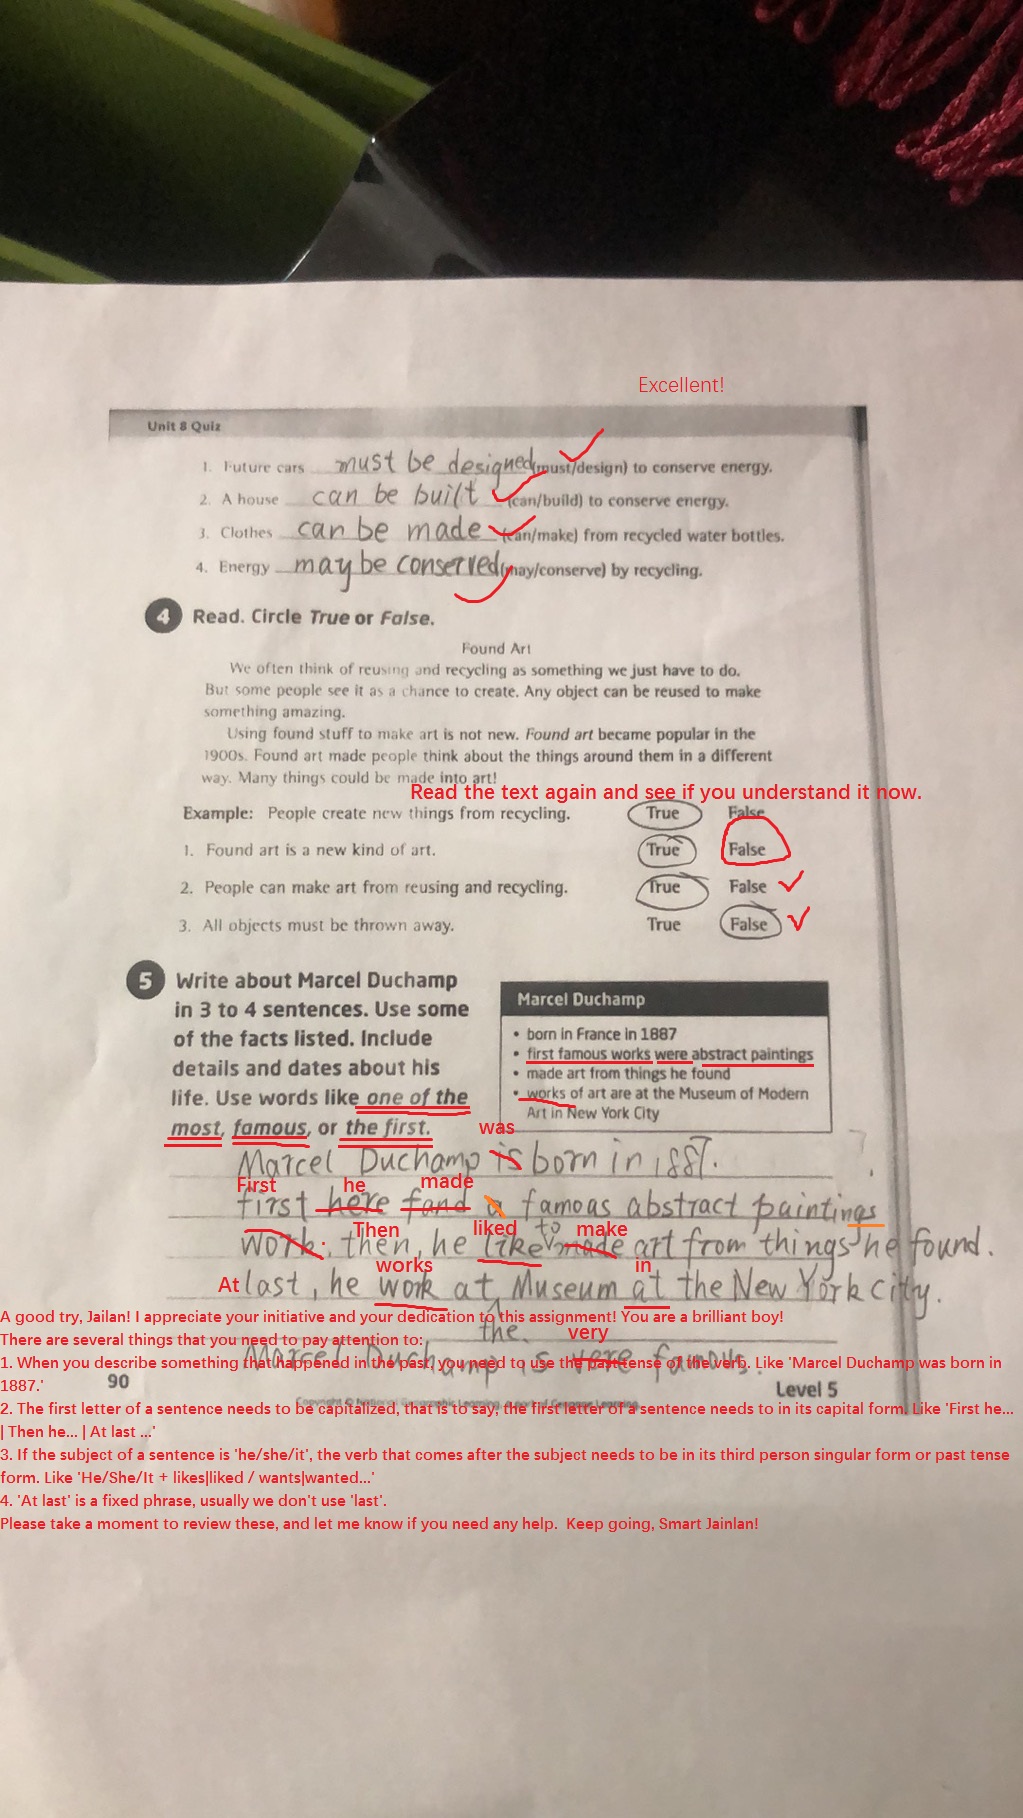 Excellent!
Unit 8 Quiz
1. Future cars must be designed (must/design) to conserve energy.
2. A house can be built (can/build) to conserve energy.
3. Clothes can be made (can/make) from recycled water bottles.
4. Energy may be conserved (may/conserve) by recycling.
4 Read. Circle True or False.
Found Art
We often think of reusing and recycling as something we just have to do.
But some people see it as a chance to create. Any object can be reused to make
something amazing.
Using found stuff to make art is not new. Found art became popular in the
1900s. Found art made people think about the things around them in a different
way. Many things could be made into art!
Read the text again and see if you understand it now.
Example: People create new things from recycling. True False
1. Found art is a new kind of art. True False
2. People can make art from reusing and recycling. True False
3. All objects must be thrown away. True False
5 Write about Marcel Duchamp
in 3 to 4 sentences. Use some
of the facts listed. Include
details and dates about his
life. Use words like one of the
most, famous, or the first.
Marcel Duchamp
• born in France in 1887
• first famous works were abstract paintings
• made art from things he found
• works of art are at the Museum of Modern
Art in New York City
was
Marcel Duchamp is born in 1887.
First he made
first here fand a famoas abstract paintings
Then liked to make
work. then, he like made art from things he found.
works in
At last, he work at Museum at the New York city.
the very
Marcel Duchamp is vere famous.
A good try, Jailan! I appreciate your initiative and your dedication to this assignment! You are a brilliant boy!
There are several things that you need to pay attention to:
1. When you describe something that happened in the past, you need to use the past tense of the verb. Like 'Marcel Duchamp was born in
1887.'
90
Level 5
Copyright © National Geographic Learning, a part of Cengage Learning
2. The first letter of a sentence needs to be capitalized, that is to say, the first letter of a sentence needs to in its capital form. Like 'First he...
| Then he... | At last ...'
3. If the subject of a sentence is 'he/she/it', the verb that comes after the subject needs to be in its third person singular form or past tense
form. Like 'He/She/It + likes|liked / wants|wanted...'
4. 'At last' is a fixed phrase, usually we don't use 'last'.
Please take a moment to review these, and let me know if you need any help. Keep going, Smart Jainlan!